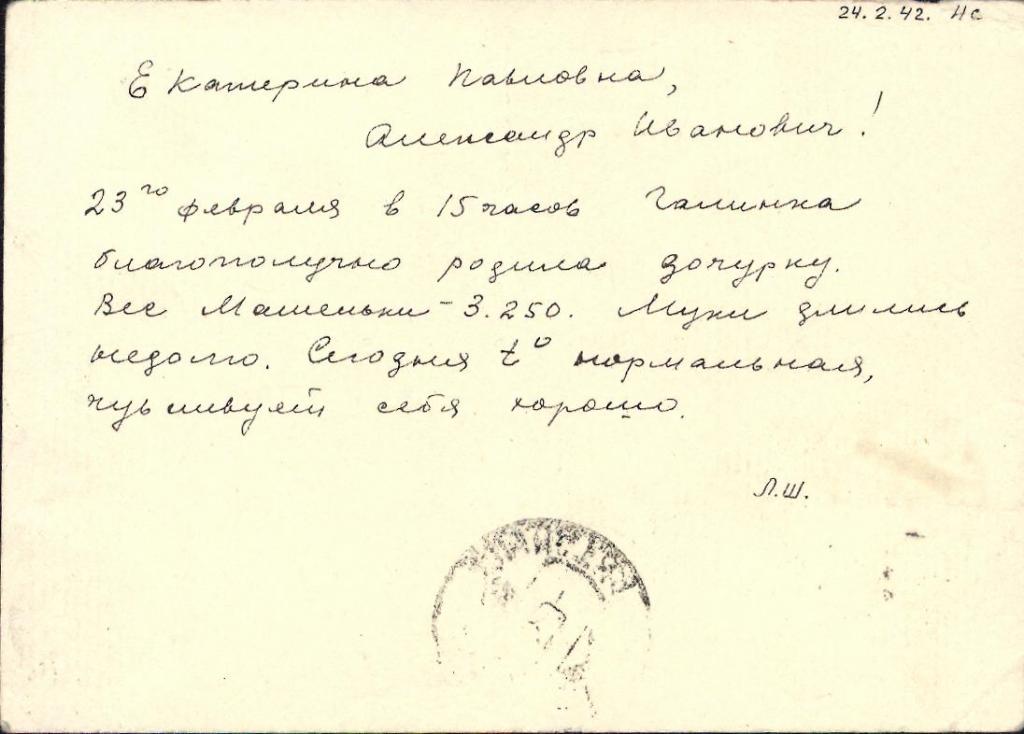 24.2.42. НС
Екатерина Павловна,
Александр Иванович!
23го февраля в 15 часов Галинка
благополучно родила дочурку.
Вес Машеньки - 3.250. Муки длились
недолго. Сегодня t° нормальная,
чувствует себя хорошо.
Л.Ш.